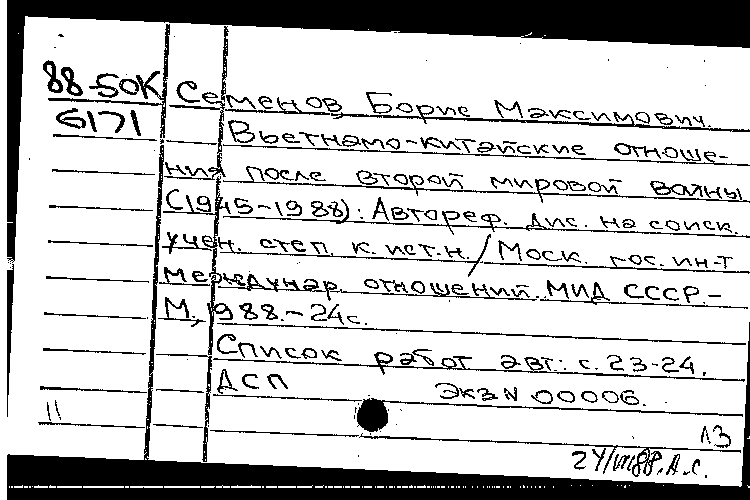 88-50К Семенов Борис Максимович.
6171 Вьетнамо-китайские отноше-
ния после второй мировой войны
(1945-1988): Автореф. дис. на соиск.
учен. степ. к. ист. н. / Моск. гос. ин-т
междунар. отношений МИД СССР.-
М., 1988.- 24с.
Список работ авт.: с. 23-24.
ДСП Экз N 00006.
11
13
24/VIII88. А.С.